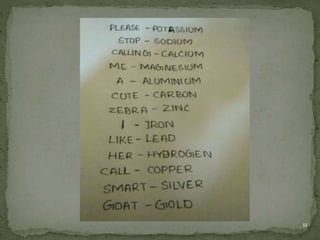 PLEASE - POTASSIUM
STOP - SODIUM
CALLING - CALCIUM
ME - MAGNESIUM
A - ALUMINIUM
CUTE - CARBON
ZEBRA - ZINC
I - IRON
LIKE - LEAD
HER - HYBROGEN
CALL - COPPER
SMART - SILVER
GOAT - GOLD
11